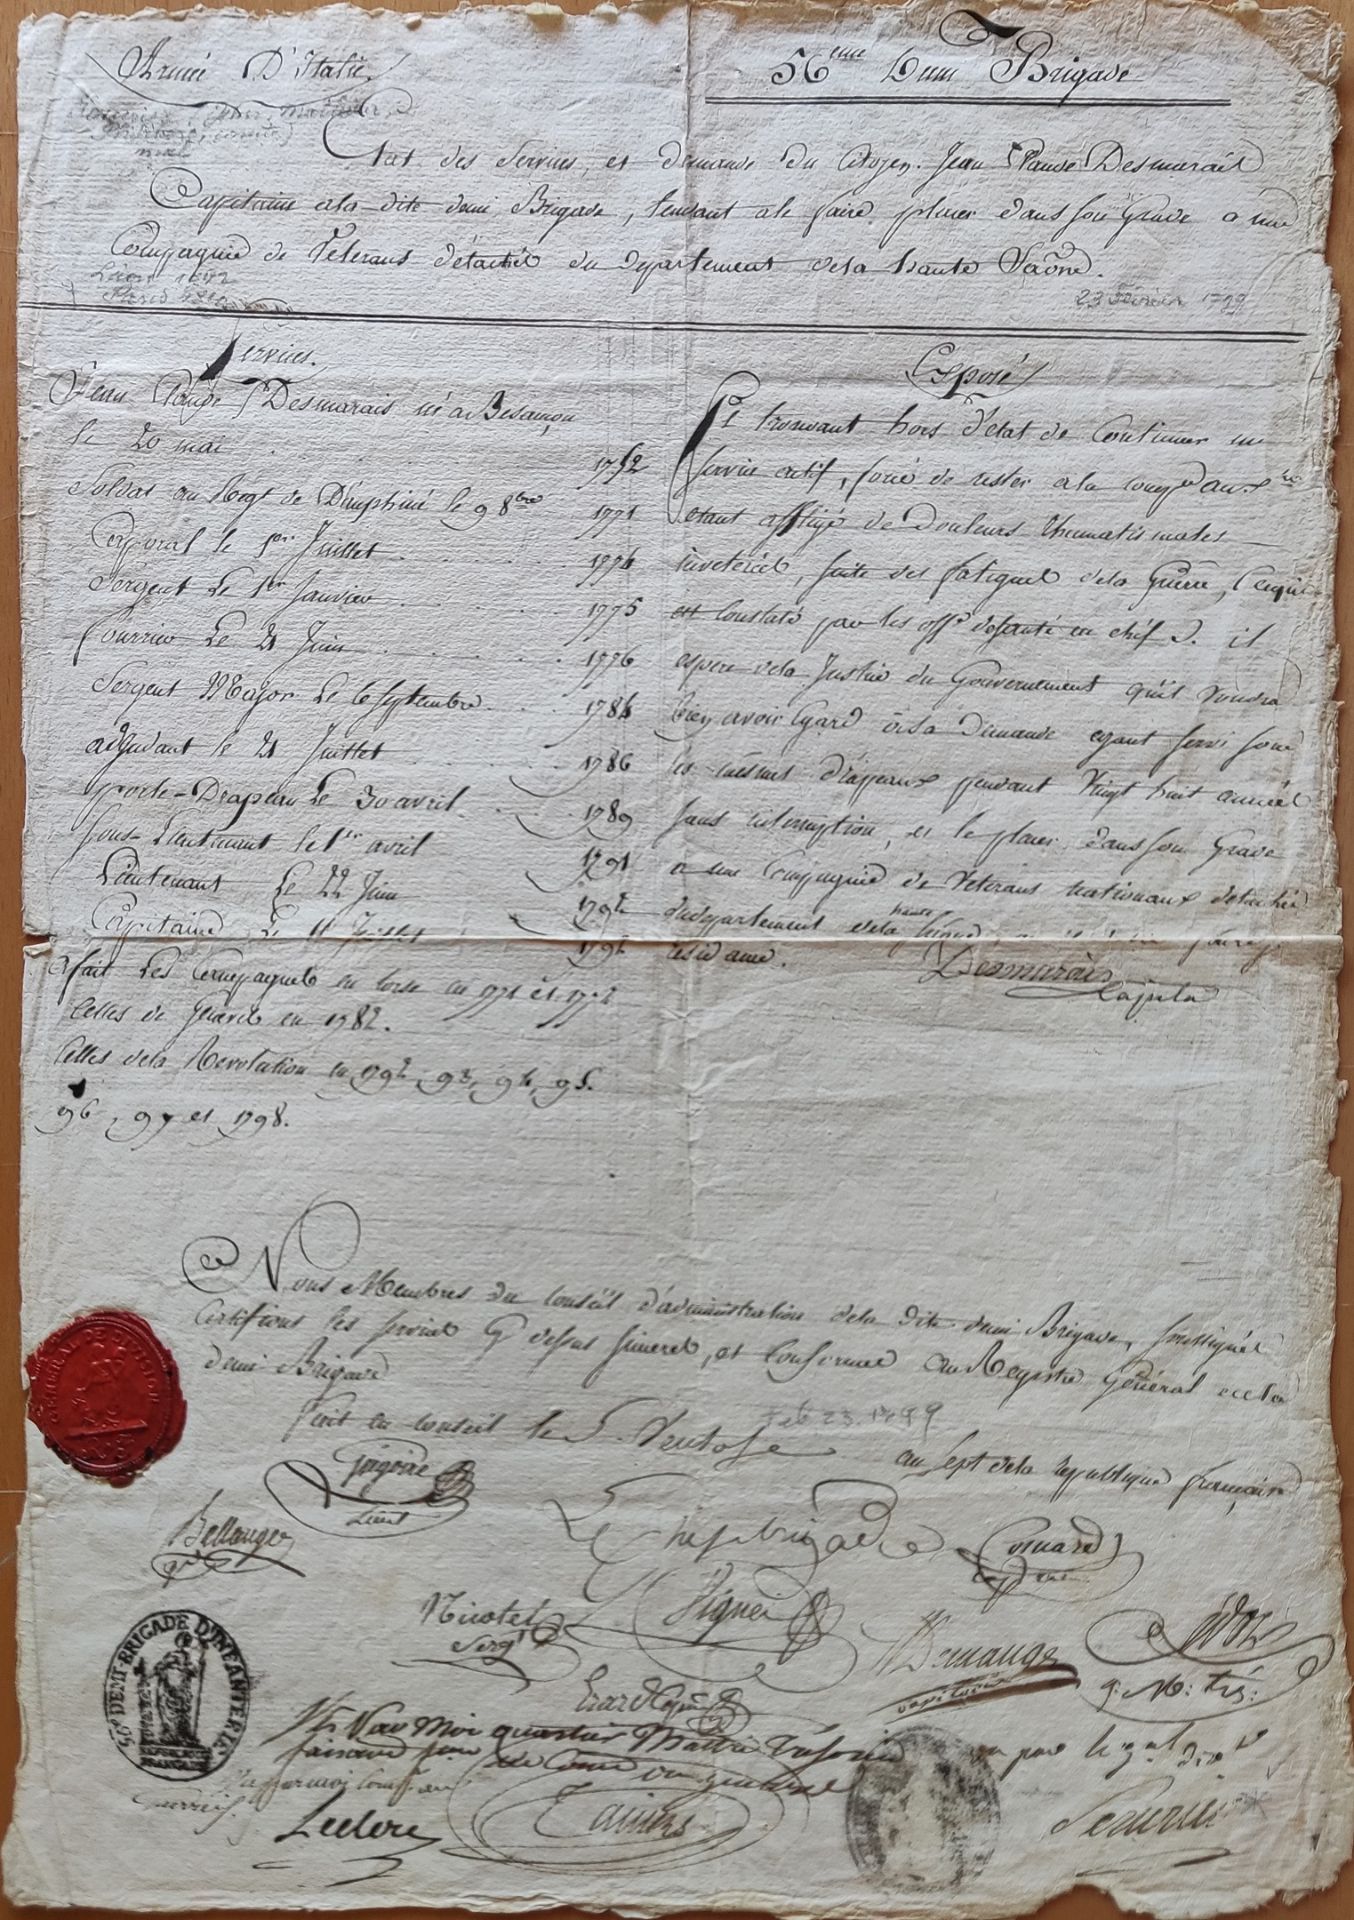 Armée D'Italie
56eme Demi Brigade
Etat des Services, et demande du Citoyen Jean Claude Desmarais
Capitaine ala dite demi Brigade, tendant a le faire placer dans son Grade a une
Compagnie de Veterans détachés du département dela haute Saône.
Paris
23 Février 1799
Services.
Jean Claude Desmarais né a Besançon
le 20 mai 1752
Soldat au Regt de Dauphiné le 9 8bre 1771
Caporal le 1er Juillet 1774
Sergent Le 1er Janvier 1775
fourrier Le 21 Juin 1776
Sergent Major Le 6 Septembre 1784
adjudant le 21 Juillet 1786
porte-Drapeau Le 30 avril 1789
sous-Lieutenant le 1er avril 1791
Lieutenant Le 22 Juin 1792
Capitaine Le 11 Juillet 1792
a fait Les Campagnes en Corse en 1771 et 1772
Celles de Genève en 1782.
Celles dela Revolution en 1792, 93, 94, 95.
96, 97 et 1798.
Exposé
Se trouvant hors d'état de Continuer un
service actif, forcé de rester a la
étant affligé de Douleurs Rhumatismales
inveterées, suite des fatigues dela Guerre, Ce qui
est Constaté par les offrs de santé en chef. il
espere dela Justice du Gouvernement qu'il voudra
bien avoir Egard à sa demande ayant servi sous
les mêmes drapeaux pendant Vingt huit années
sans interruption, et le placer dans son Grade
a une Compagnie de Veterans nationaux détachée
du département dela haute Saône,
Desmarais
Capite
Nous Membres du Conseil d'administration dela dite demi Brigade, soussignés
Certifions les services Cy dessus sinceres, et Conformes au Registre Général de la
demi Brigade
Fait en Conseil le 5 Ventose an sept dela republique française
Feb 23. 1799
Grégoire
Lieut
Bellanger
Le Chef de brigade
Cap
Nicotet
Sergt
Viguei
Demange
capitaine
q. M. trés.
Erard
Vu Par Moi quartier Maitre Trésorier
faisant
Leclerc
vu par le gal Dre
Serurier
56E DEMI-BRIGADE D'INFANTERIE
GENERAL DE DIVISION